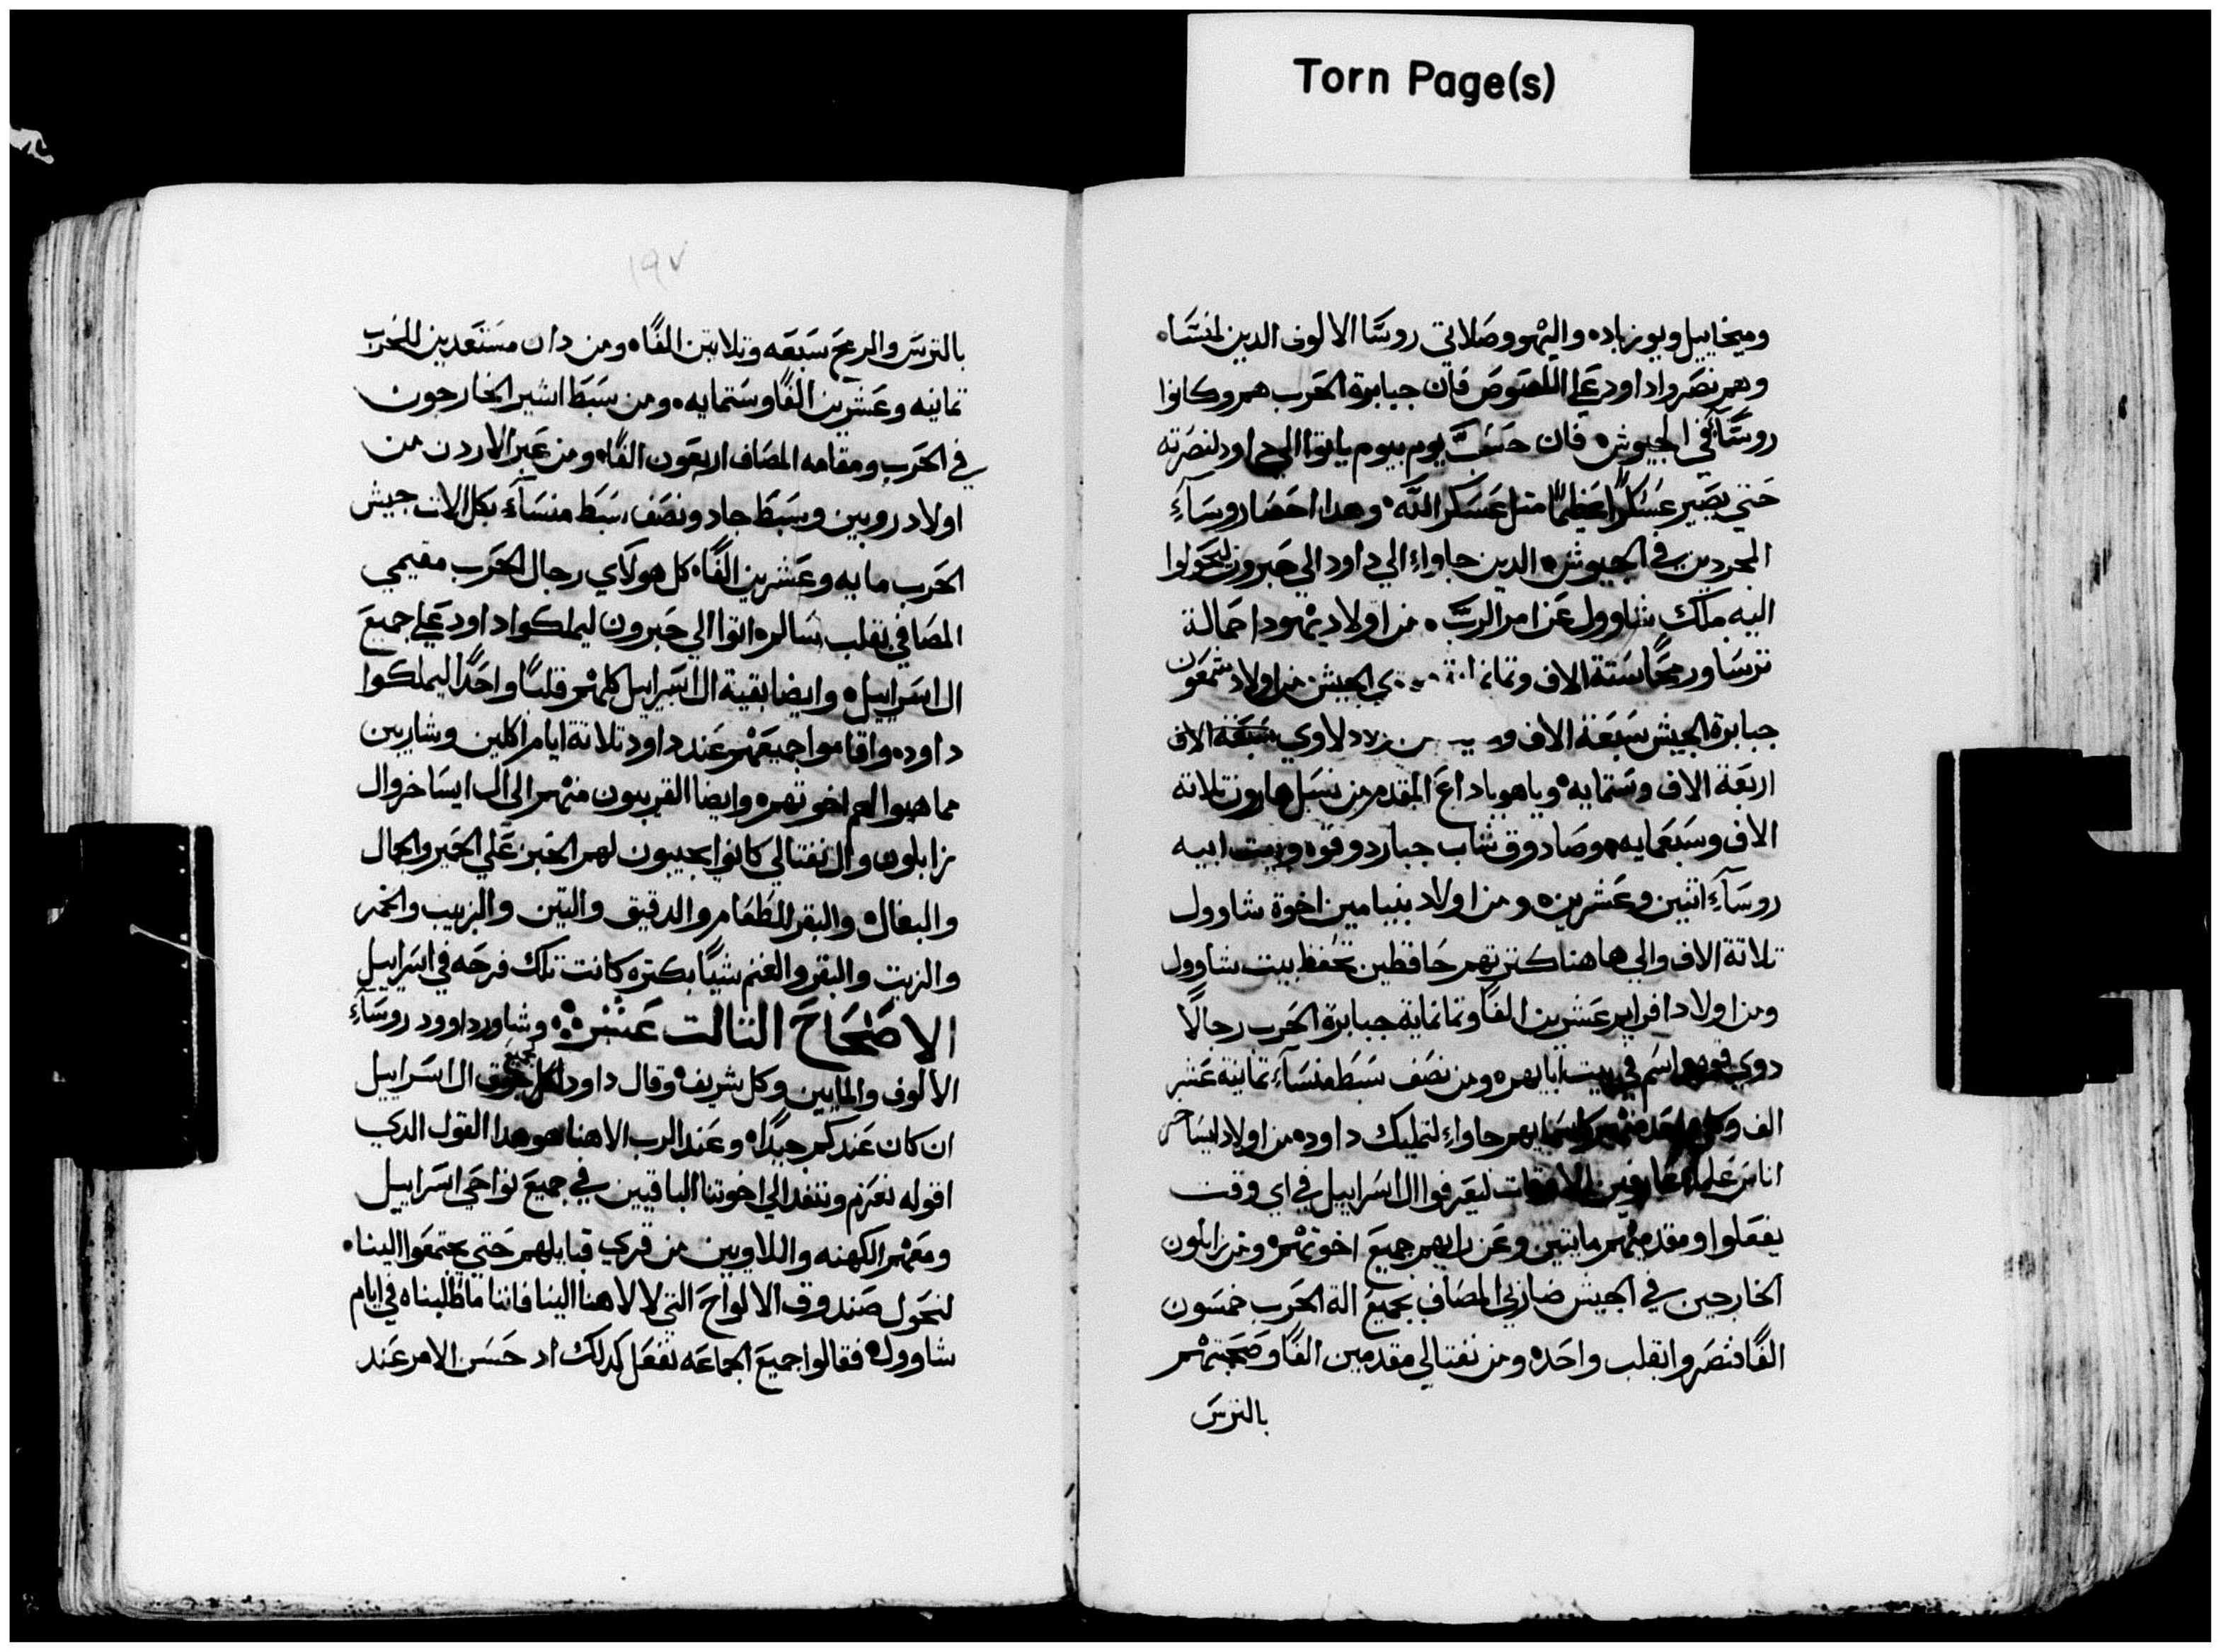 Torn Page(s)
وميخاييل ويوزباده واليهو وصلاتي روسا الالوف الدين لمنسا
وهم نصروا داود علي اللصوص فان جبابرة الحرب هم وكانوا
روسآ في الجيوش فان حسب يوم بيوم ياتوا الي داود لنصرته
حتي يصير عسكرًا عظيمًا متل عسكر الله وهدا احصا روسآء
المجردين في الجيوش الدين جاواء الي داود الي حبرون ليحولوا
اليه ملك شاوول عن امر الرب من اولاد يهودا حمالة
ترسا ورمحًا ستة الاف وتمانماية الجيش من اولاد شمعون
جبابرة الجيش سبعة الاف لاوي
اربعة الاف وستمايه وياهوياداع المقدم من نسل هارون تلاته
الاف وسبعمايه وصادوق شاب جبار دو قوه وبيت ابيه
روسآء اتنين وعشرين ومن اولاد بنيامين اخوة شاوول
تلاتة الاف والي هاهنا كترتهم حافظين تحفظ بيت شاوول
ومن اولاد افرايم عشرين الفًا وتمانماية جبابرة الحرب رجالًا
دوي اسم في بيت ابايهم ومن نصف سبط منسآء تمانية عشر
الف وكل واحد منهم باسمايهم جاواء لتمليك داود من اولاد ايساخر
اناس علماء عارفين الاوقات ليعرفوا ال اسراييل في اي وقت
يفعلوا ومقدميهم مايتين وعن رايهم جميع اخوتهم ومن زابلون
الخارجين في الجيش ضاربي المصاف بجميع الة الحرب خمسون
الفًا فنصروا بقلب واحد ومن نفتالي مقدمين الفًا وصحبتهم
بالترس
١٩٧
بالترس والرمح سبعه وتلاتين الفًا ومن دان مستعدين للحرب
تمانيه وعشرين الفًا وستمايه ومن سبط اشير الخارجون
في الحرب ومقامه المصاف اربعون الفًا ومن عبر الاردن من
اولاد روبين وسبط جاد ونصف سبط منسآء بكل الات جيش
الحرب مايه وعشرين الفًا كل هولاي رجال الحرب مقيمي
المصافي بقلب سالم اتوا الي حبرون ليملكوا داود علي جميع
ال اسراييل وايضا بقية ال اسراييل كلهم قلبًا واحدًا ليملكوا
داود واقاموا جميعهم عند داود تلاتة ايام اكلين وشاربين
مما هيوا لهم اخوتهم وايضا القريبون منهم الي ال ايساخر وال
زابلون وال نفتالي كانوا يجيبون لهم الخبز علي الحمير والجمال
والبغال والبقر للطعام والدقيق والتين والزبيب والخمر
والزيت والبقر والغنم شيًا بكتره كانت تلك فرحه في اسراييل
الاصحاح التالت عشر وشاور داوود روسآء
الالوف والمايين وكل شريف وقال داود لكل جميع ال اسراييل
ان كان عندكم جيدًا وعند الرب الاهنا هو هدا القول الدي
اقوله نعزم وننفد الي اخوتنا الباقيين في جميع نواحي اسراييل
ومعهم الكهنه واللاويين من قري قبايلهم حتي يجتمعوا الينا
لنحول صندوق الالواح التي لالاهنا الينا فاننا ما طلبناه في ايام
شاوول فقالوا جميع الجماعه نفعل كدلك اد حسن الامر عند